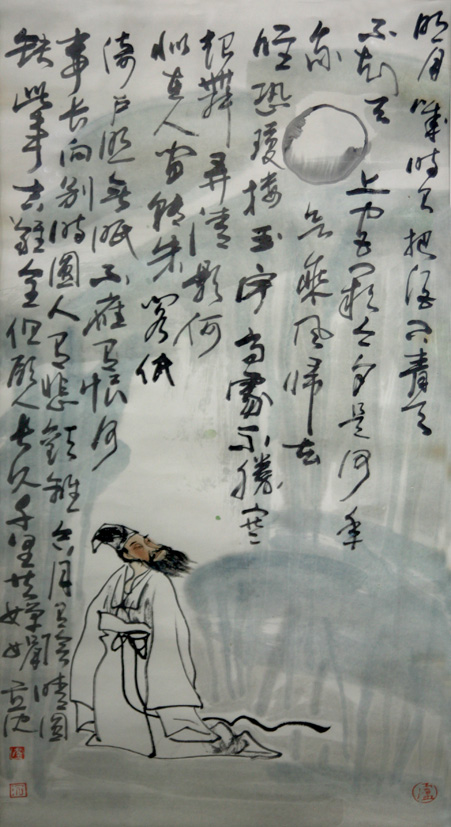 明月幾時有把酒问青天
不知天上宫闕今夕是何年
欲乘風歸去
唯恐瓊樓玉宇高處不勝寒
起舞弄清影何
似在人间轉朱閣低
綺户照無眠不應有恨何
事长向别時圓人有悲歡離合月有陰晴圓
缺此事古難全但願人長久千里共嬋娟